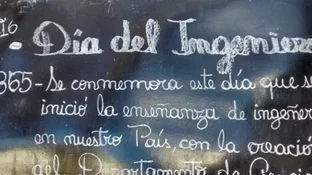 16- Día del Ingeniero
865- Se conmemora este día que s
inició la enseñanza de ingeñer
en nuestro País, con la creació
del Departamento de Cienci